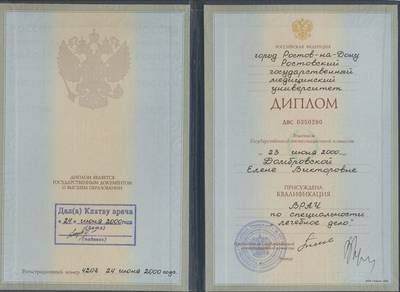 ДИПЛОМ ЯВЛЯЕТСЯ
ГОСУДАРСТВЕННЫМ ДОКУМЕНТОМ
О ВЫСШЕМ ОБРАЗОВАНИИ
Дал(а) Клятву врача
"24" июня 2000 года
(дата)
(подпись)
Регистрационный номер 4202 24 июня 2000 года.
РОССИЙСКАЯ ФЕДЕРАЦИЯ
город Ростов-на-Дону
Ростовский
государственный
медицинский
университет
ДИПЛОМ
ДВС 0350280
Решением
Государственной аттестационной комиссии
„ 23 июня 2000
Домбровской
Елене Викторовне
ПРИСУЖДЕНА
КВАЛИФИКАЦИЯ
ВРАЧ
по специальности
„лечебное дело"